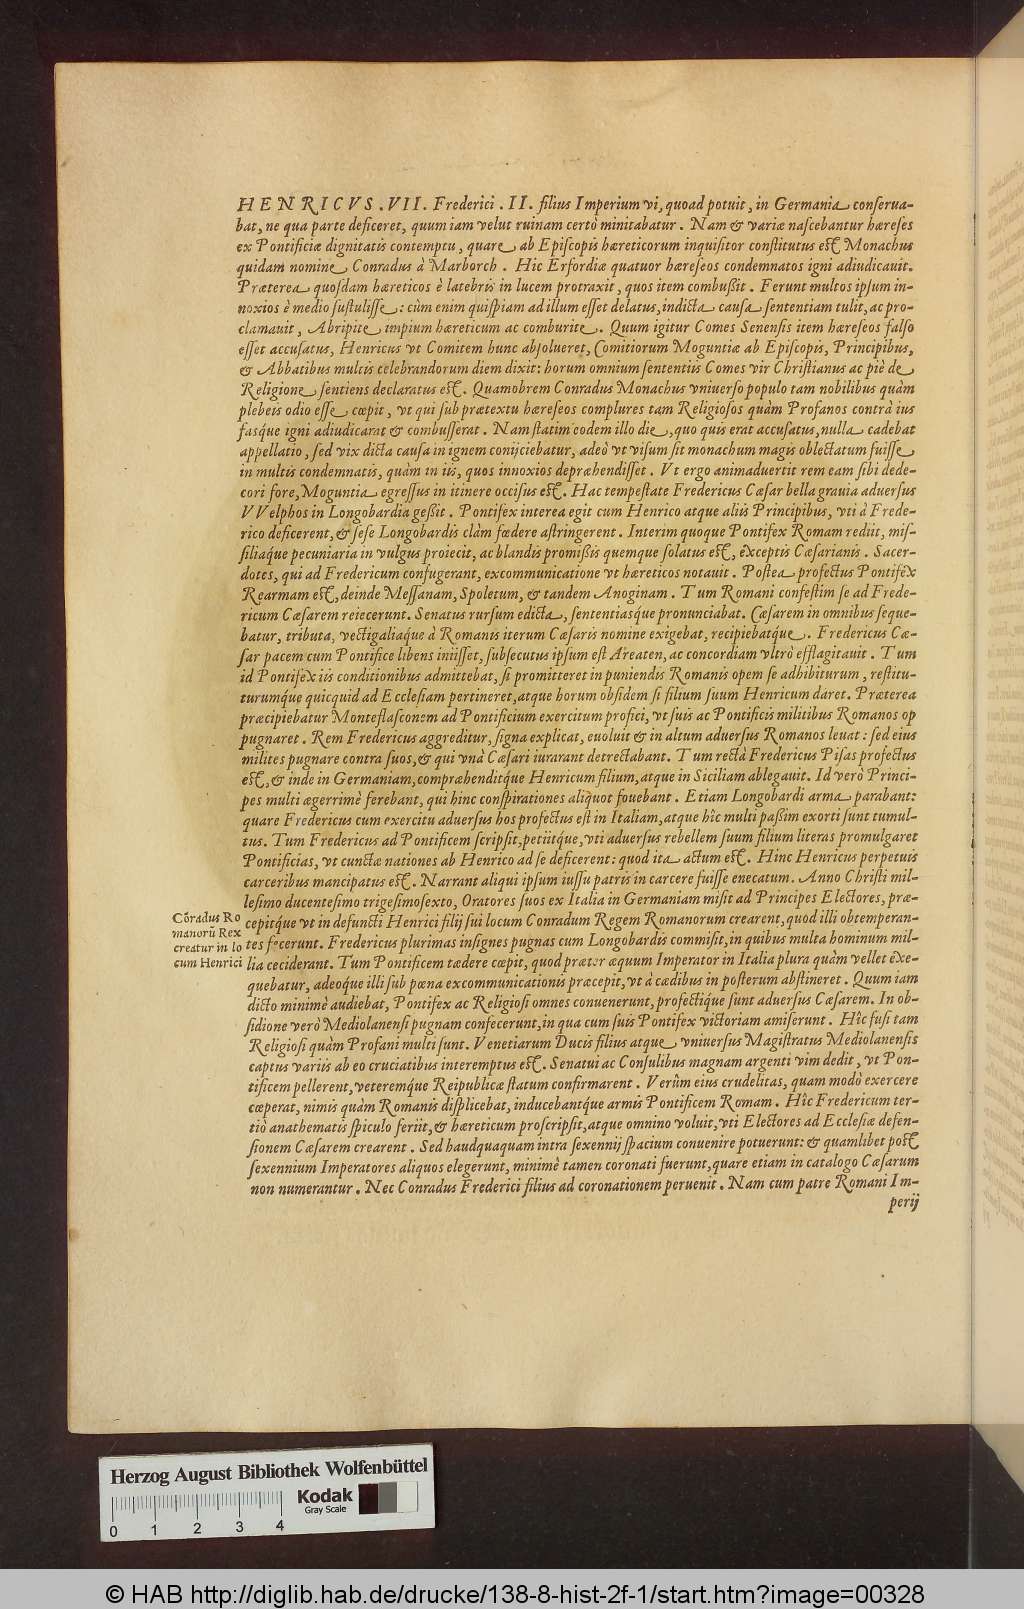 HENRICVS . VII. Frederici . II. filius Imperium vi, quoad potuit, in Germania conserua-
bat, ne qua parte deficeret, quum iam velut ruinam certò minitabatur . Nam & variæ nascebantur hæreses
ex Pontificiæ dignitatis contemptu, quare ab Episcopis hæreticorum inquisitor constitutus est Monachus
quidam nomine Conradus à Marborch . Hic Erfordiæ quatuor hæreseos condemnatos igni adiudicauit.
Præterea quosdam hæreticos è latebris in lucem protraxit, quos item combußit . Ferunt multos ipsum in-
noxios è medio sustulisse : cùm enim quispiam ad illum esset delatus, indicta causa sententiam tulit, ac pro-
clamauit, Abripite impium hæreticum ac comburite . Quum igitur Comes Senensis item hæreseos falso
esset accusatus, Henricus vt Comitem hunc absolueret, Comitiorum Moguntiæ ab Episcopis, Principibus,
& Abbatibus multis celebrandorum diem dixit: horum omnium sententiis Comes vir Christianus ac piè de
Religione sentiens declaratus est . Quamobrem Conradus Monachus vniuerso populo tam nobilibus quàm
plebeis odio esse cœpit, vt qui sub prætextu hæreseos complures tam Religiosos quàm Profanos contrà ius
fasq́ue igni adiudicarat & combusserat . Nam statim eodem illo die, quo quis erat accusatus, nulla cadebat
appellatio, sed vix dicta causa in ignem coniiciebatur, adeò vt visum sit monachum magis oblectatum fuisse
in multis condemnatis, quàm in iis, quos innoxios depræhendisset . Vt ergo animaduertit rem eam sibi dede-
cori fore, Moguntia egressus in itinere occisus est . Hac tempestate Fredericus Cæsar bella grauia aduersus
VVelphos in Longobardia geßit . Pontifex interea egit cum Henrico atque aliis Principibus, vti à Frede-
rico deficerent, & sese Longobardis clàm fœdere astringerent . Interim quoque Pontifex Romam rediit, mis-
siliaq́ue pecuniaria in vulgus proiecit, ac blandis promißis quemque solatus est, exceptis Cæsarianis . Sacer-
dotes, qui ad Fredericum confugerant, excommunicatione vt hæreticos notauit . Postea profectus Pontifex
Rearmam est, deinde Messanam, Spoletum, & tandem Anoginam . Tum Romani confestim se ad Frede-
ricum Cæsarem reiecerunt. Senatus rursum edicta, sententiasq́ue pronunciabat. Cæsarem in omnibus seque-
batur, tributa, vectigaliaq́ue à Romanis iterum Cæsaris nomine exigebat, recipiebatq́ue . Fredericus Cæ-
sar pacem cum Pontifice libens iniisset, subsecutus ipsum est Areaten, ac concordiam vltrò efflagitauit . Tum
id Pontifex iis conditionibus admittebat, si promitteret in puniendis Romanis opem se adhibiturum, restitu-
turumq́ue quicquid ad Ecclesiam pertineret, atque horum obsidem si filium suum Henricum daret. Præterea
præcipiebatur Monteflasconem ad Pontificium exercitum profici, vt suis ac Pontificis militibus Romanos op
pugnaret . Rem Fredericus aggreditur, signa explicat, euoluit & in altum aduersus Romanos leuat : sed eius
milites pugnare contra suos, & qui vnà Cæsari iurarant detrectabant. Tum rectà Fredericus Pisas profectus
est, & inde in Germaniam, compræhenditq́ue Henricum filium, atque in Siciliam ablegauit. Id verò Princi-
pes multi ægerrimè ferebant, qui hinc conspirationes aliquot fouebant . Etiam Longobardi arma parabant:
quare Fredericus cum exercitu aduersus hos profectus est in Italiam, atque hîc multi paßim exorti sunt tumul-
tus. Tum Fredericus ad Pontificem scripsit, petiitq́ue, vti aduersus rebellem suum filium literas promulgaret
Pontificias, vt cunctæ nationes ab Henrico ad se deficerent : quod ita actum est . Hinc Henricus perpetuis
carceribus mancipatus est . Narrant aliqui ipsum iussu patris in carcere fuisse enecatum. Anno Christi mil-
lesimo ducentesimo trigesimosexto, Oratores suos ex Italia in Germaniam misit ad Principes Electores, præ-
cepitq́ue vt in defuncti Henrici filij sui locum Conradum Regem Romanorum crearent, quod illi obtemperan-
tes fecerunt . Fredericus plurimas insignes pugnas cum Longobardis commisit, in quibus multa hominum mil-
lia ceciderant. Tum Pontificem tædere cœpit, quod præter æquum Imperator in Italia plura quàm vellet exe-
quebatur, adeoque illi sub pœna excommunicationis præcepit, vt à cædibus in posterum abstineret . Quum iam
dicto minimè audiebat, Pontifex ac Religiosi omnes conuenerunt, profectiq́ue sunt aduersus Cæsarem. In ob-
sidione verò Mediolanensi pugnam confecerunt, in qua cum suis Pontifex victoriam amiserunt . Hîc fusi tam
Religiosi quàm Profani multi sunt . Venetiarum Ducis filius atque vniuersus Magistratus Mediolanensis
captus variis ab eo cruciatibus interemptus est . Senatui ac Consulibus magnam argenti vim dedit, vt Pon-
tificem pellerent, veteremq́ue Reipublicæ statum confirmarent . Verùm eius crudelitas, quam modò exercere
cœperat, nimis quàm Romanis displicebat, inducebantq́ue armis Pontificem Romam . Hîc Fredericum ter-
tiò anathematis spiculo feriit, & hæreticum proscripsit, atque omnino voluit, vti Electores ad Ecclesiæ defen-
sionem Cæsarem crearent . Sed haudquaquam intra sexennij spacium conuenire potuerunt : & quamlibet post
sexennium Imperatores aliquos elegerunt, minimè tamen coronati fuerunt, quare etiam in catalogo Cæsarum
non numerantur . Nec Conradus Frederici filius ad coronationem peruenit . Nam cum patre Romani Im-
perij
Cōradus Ro
manorū Rex
creatur in lo
cum Henrici
Herzog August Bibliothek Wolfenbüttel
Kodak
Gray Scale
0 1 2 3 4
© HAB http://diglib.hab.de/drucke/138-8-hist-2f-1/start.htm?image=00328